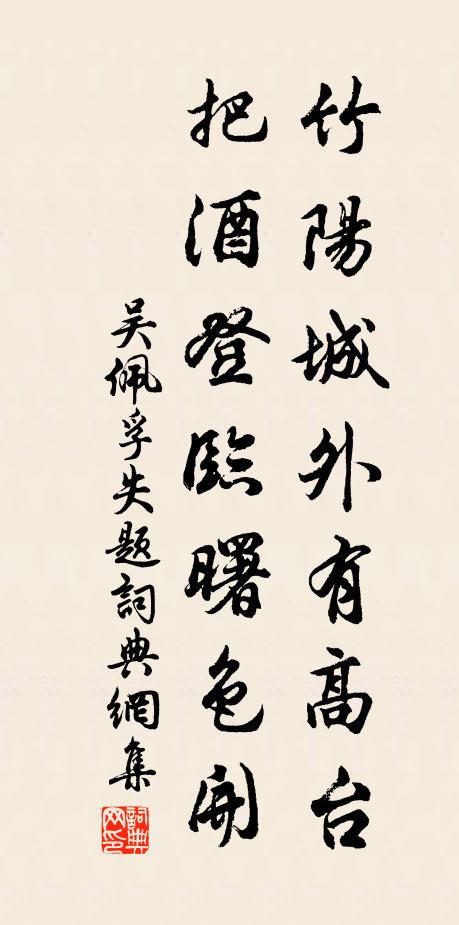 竹陽城外有高台
把酒登臨曙色開
吴佩孚失题詞典網集
詞典網印